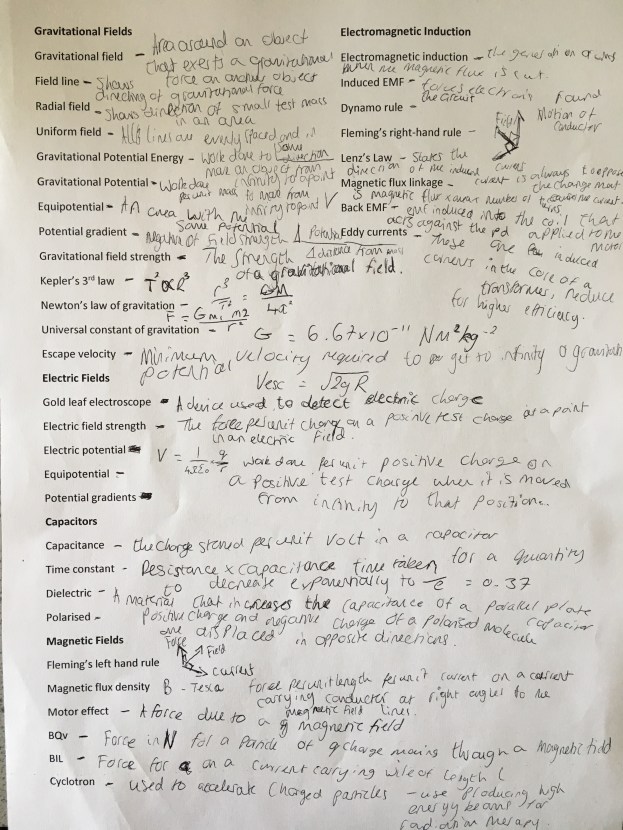 Gravitational Fields
Gravitational field - Area around an object
that exerts a gravitational
force on another object
Field line - Shows
direction of gravitational force
Radial field - Shows direction of small test mass
in an area
Uniform field - All lines are evenly spaced and in
same
direction
Gravitational Potential Energy - Work done to
move an object from
infinity to a point
Gravitational Potential - Work done
per unit mass to move from
infinity to point V
Equipotential - An area with
same potential
Potential gradient - negative of field strength Δ Potential
Δ distance from mass
Gravitational field strength - The strength
of a gravitational field.
Kepler's 3rd law - T² α r³ r³/T² = GM/4π²
Newton's law of gravitation - F = G m₁ m2 / r²
Universal constant of gravitation - G = 6.67x10⁻¹¹ Nm²kg⁻²
Escape velocity - Minimum velocity required to get to infinity 0 gravitational
potential
Vesc = √2gR
Electric Fields
Gold leaf electroscope - A device used to detect electric charge
Electric field strength - The force per unit charge on a positive test charge at a point
in an electric field.
Electric potential V = 1/4πε₀ q/r work done per unit positive charge on
a positive test charge when it is moved
from infinity to that position.
Equipotential -
Potential gradients
Capacitors
Capacitance - the charge stored per unit volt in a capacitor
Time constant - Resistance x capacitance time taken for a quantity
to decrease exponentially to = 0.37
Dielectric - A material that increases the capacitance of a parallel plate
capacitor
Polarised - positive charge and negative charge of a polarised molecule
are displaced in opposite directions.
Magnetic Fields
Force
Field
Fleming's left hand rule
Current
Magnetic flux density B - Tesla force per unit length per unit current on a current
carrying conductor at right angles to the
magnetic field lines.
Motor effect - A force due to a magnetic field
BQv - Force in N for a particle of q charge moving through a magnetic field
BIL - Force for on a current carrying wire of length L
Cyclotron - used to accelerate charged particles - use producing high
energy beams for
radiation therapy.
Electromagnetic Induction
Electromagnetic induction - the generation of
when the magnetic flux is cut.
Induced EMF - forces electrons round
the circuit
Dynamo rule -
Field
Motion of
conductor
Fleming's right-hand rule -
Lenz's Law - States the
direction of the induced current is always to oppose
the change that
Magnetic flux linkage -
is magnetic flux x number of turns
Back EMF - emf induced into the coil that
acts against the pd applied to the
motor
Eddy currents - Those are induced
currents in the core of a
transformer, reduce
for higher efficiency.